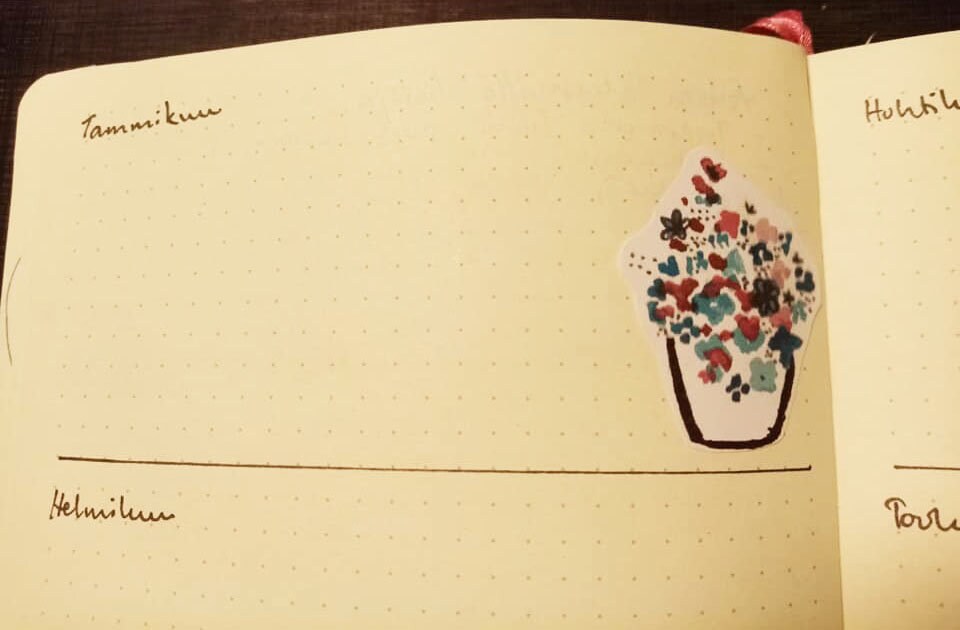 Tammikuu
Helmikuu
Huhtik
Touk